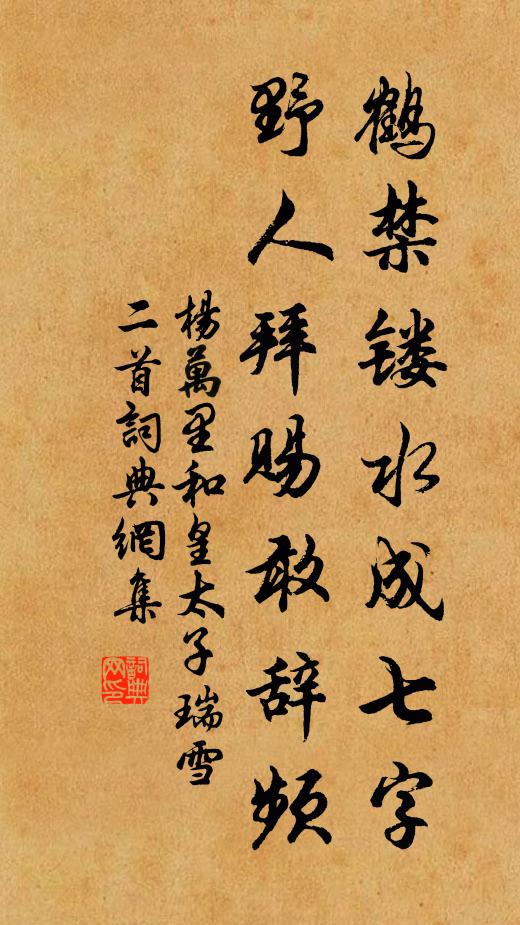 鹤禁镂冰成七字
野人拜赐敢辞频
楊萬里和皇太子瑞雪
二首詞典網集
詞典网印